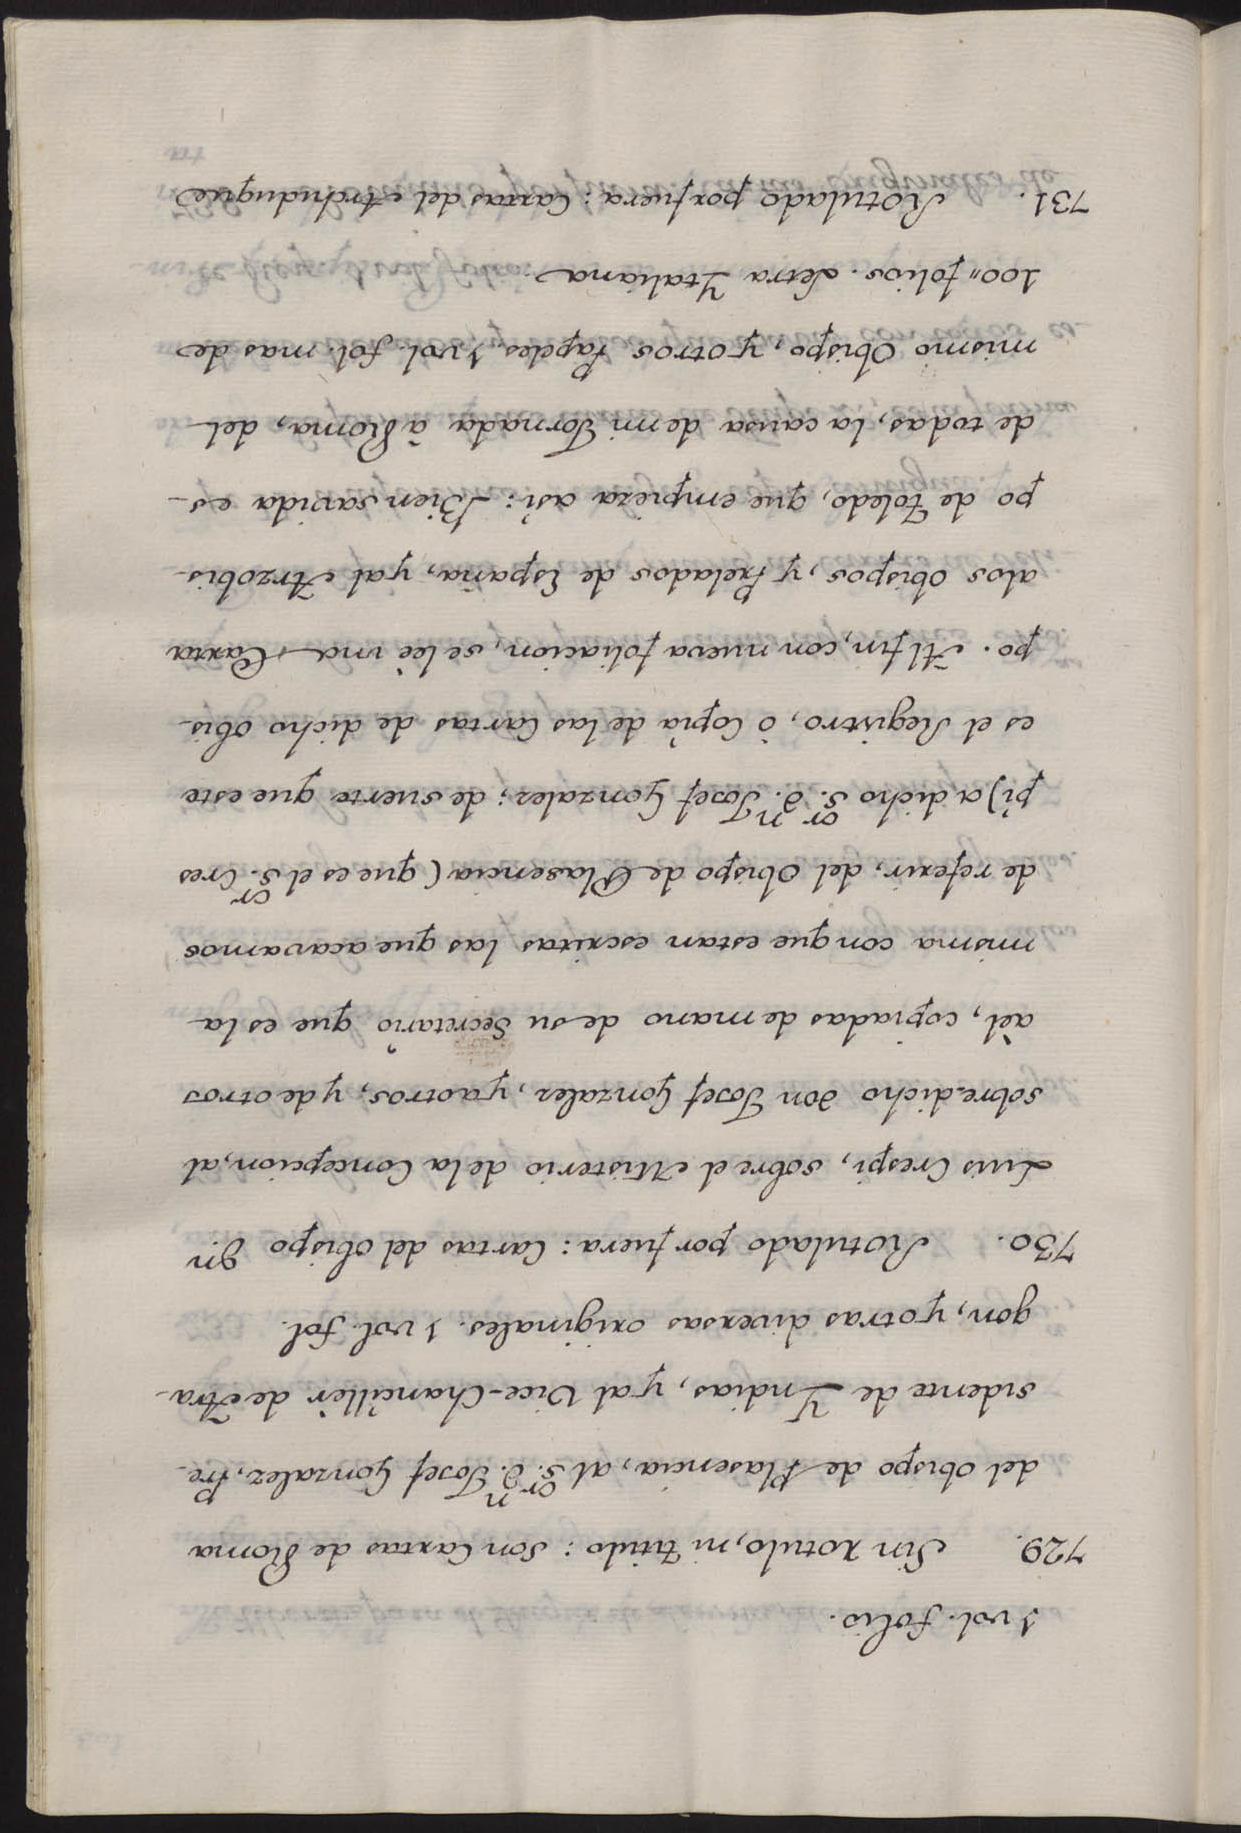 1 vol. folio.
729. Sin rotulo, ni titulo: Son Cartas de Roma
del obispo de Plasencia, al S.or D.n Josef Gonzalez, Pre-
sidente de Indias, y al Vice-Chancillèr de Ara-
gon, y otras diversas originales. 1 vol. fol.
730. Rotulado por fuera: Cartas del obispo D.n
Luis Crespi, sobre el Misterio de la Concepcion, al
sobredicho Don Josef Gonzalez, y a otros, y de otros
aèl, copiadas de mano de su Secretario que es la
misma con que estan escritas las que acavamos
de referir, del obispo de Plasencia (que es el S.or Cres
pi) a dicho S.or D.n Josef Gonzalez; de suerte que este
es el Registro, ò Copia de las Cartas de dicho obis-
po. Al fin, con nueva foliacion, se leè una Carta
alos obispos, y Prelados de España, y al Arzobis-
po de Toledo, que empieza asi: Bien savida es
de todas, la causa de mi Jornada à Roma, del
mismo Obispo, y otros Papeles 1 vol. fol. mas de
100" folios. Letra Ytaliana.
731. Rotulado por fuera: Cartas del Archiduque